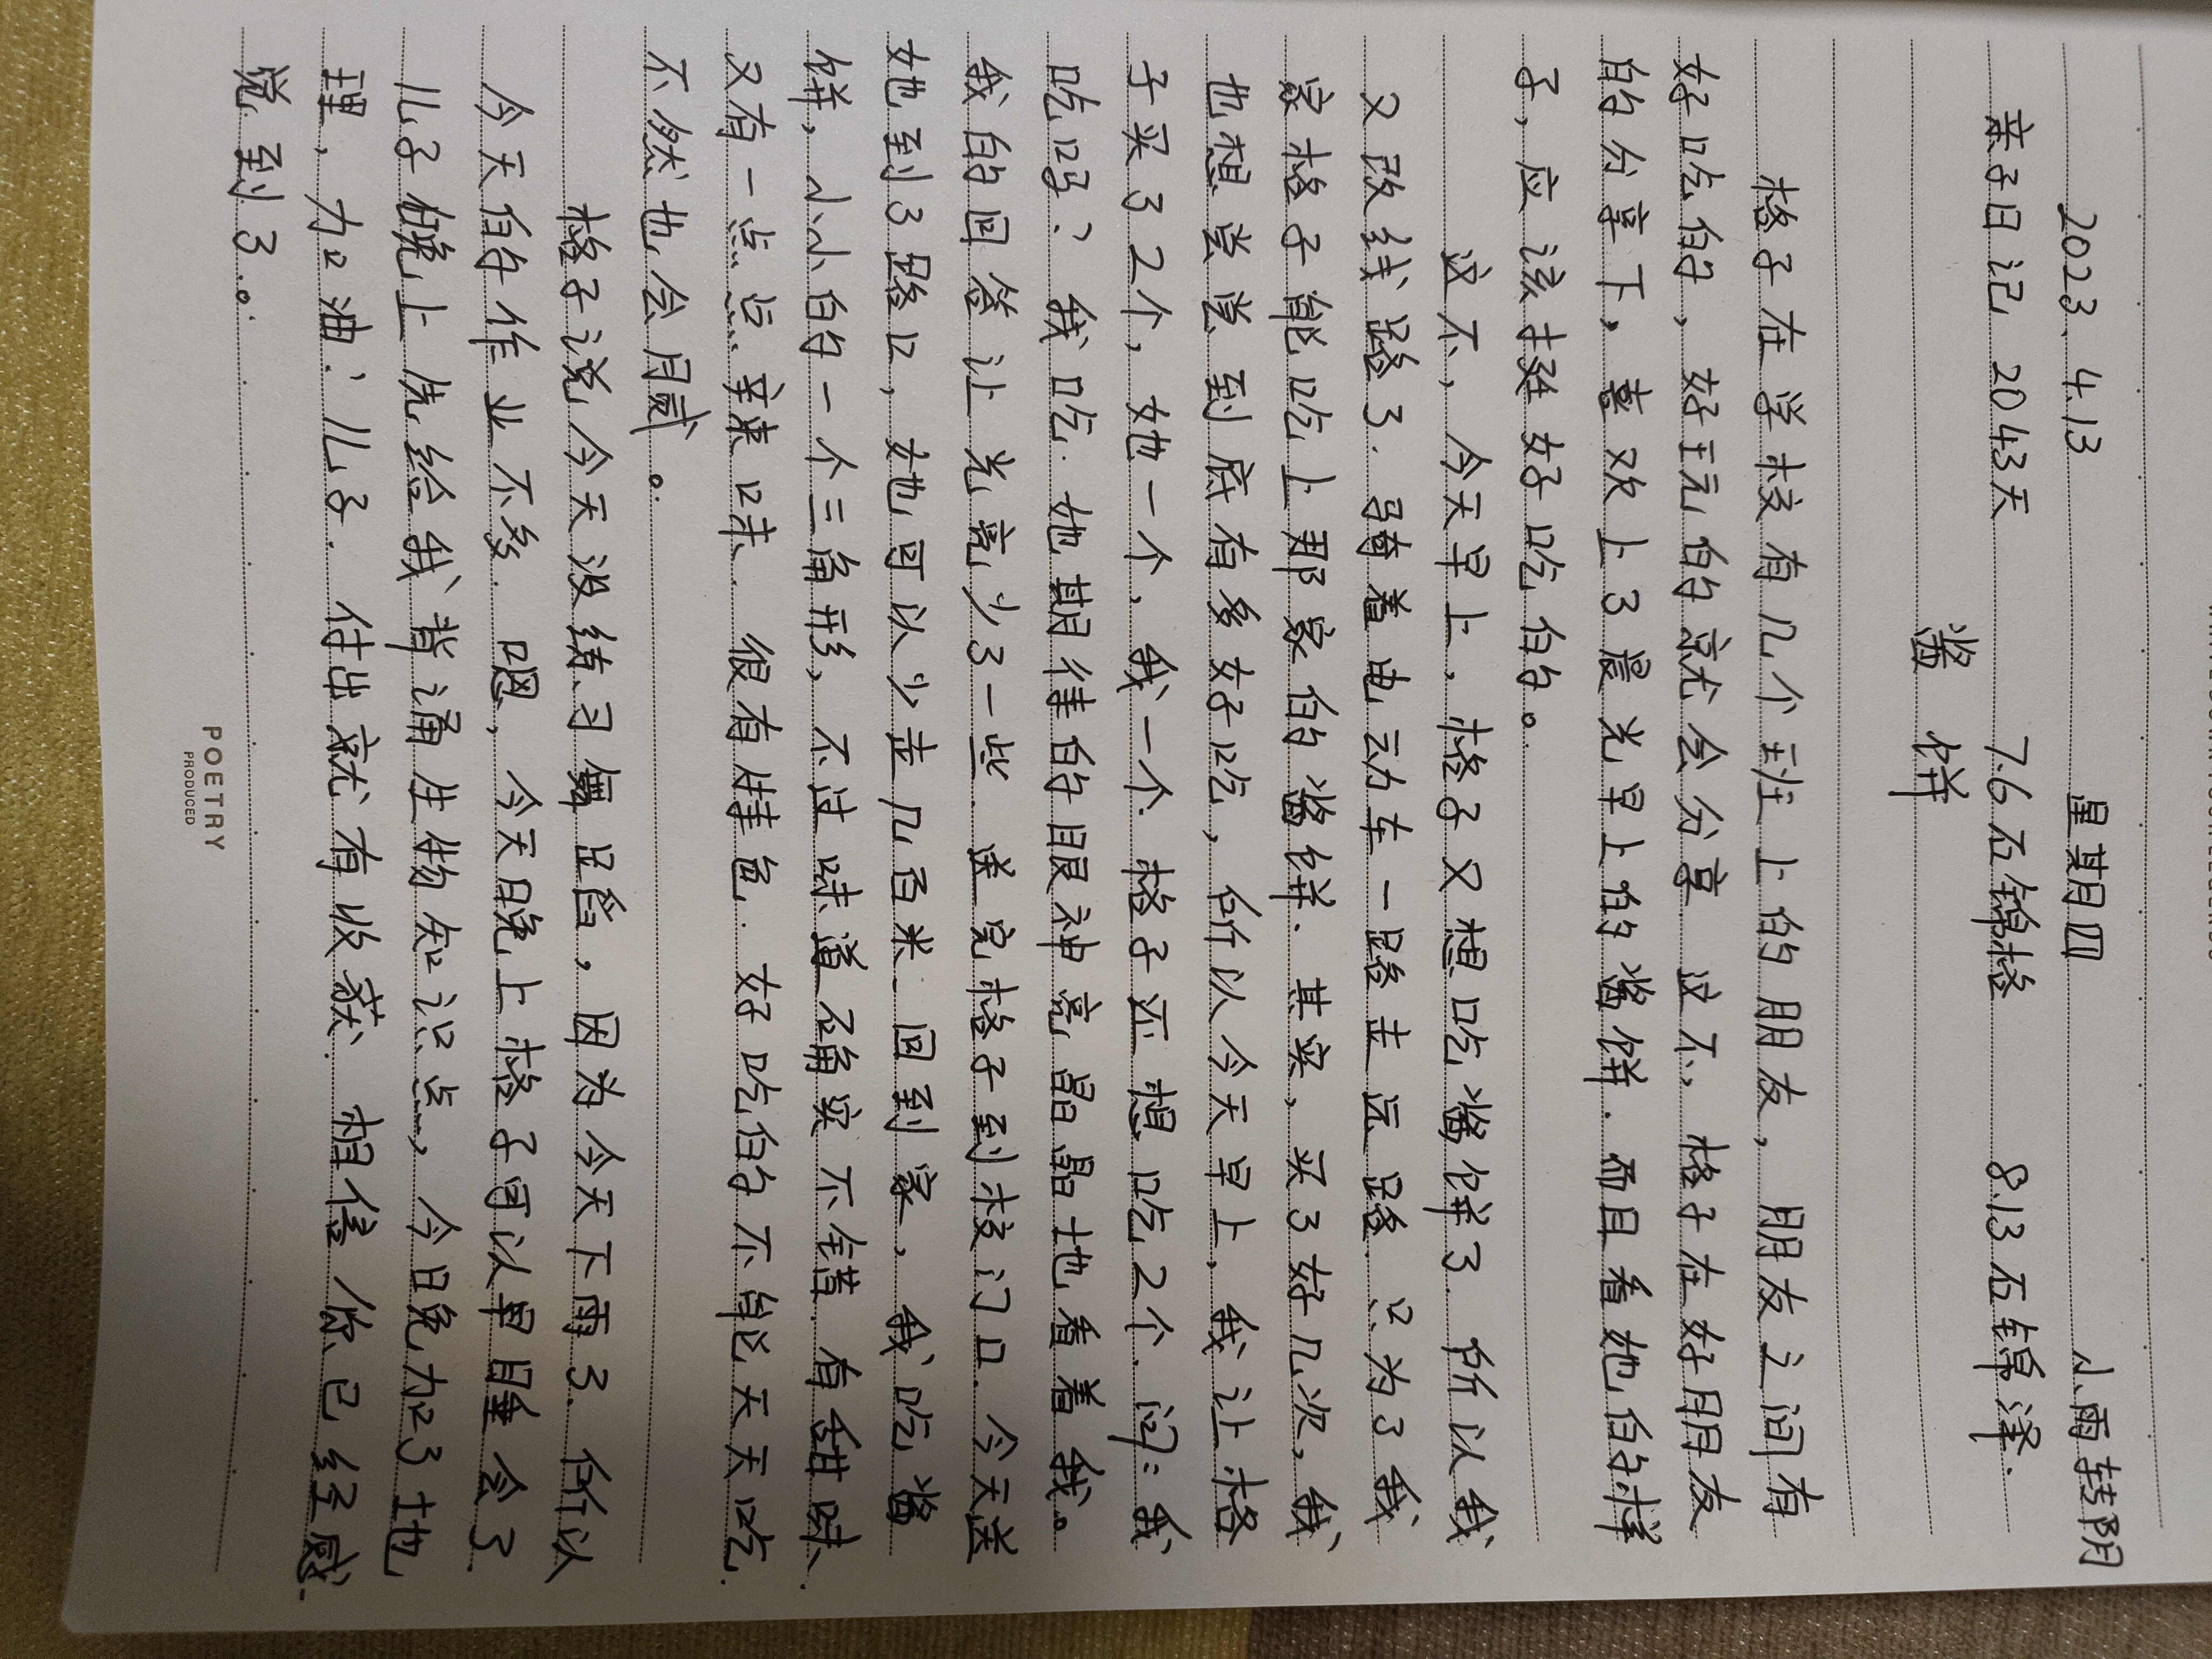 2023.4.13 星期四 小雨转阴
亲子日记 2043天 7.6石锦格 8.13石锦泽.
酱饼
格子在学校有几个班上的朋友，朋友之间有
好吃的，好玩的就会分享 这不，格子在好朋友
的分享下，喜欢上了晨光早上的酱饼.而且看她的样
子，应该挺好吃的。
这不，今天早上，格子又想吃酱饼了.所以我
又改线路了.骑着电动车一路走远路.只为了我
家格子能吃上那家的酱饼.其实，买了好几次，我
也想尝尝到底有多好吃，所以今天早上，我让格
子买了2个，她一个，我一个.格子还想吃2个.问：我
吃吗？我吃.她期待的眼神亮晶晶地看着我。
我的回答让光亮少了一些.送完格子到校门口.今天送
她到了路口，她可以少走几百米.回到家，我吃酱
饼，小小的一个三角形，不过味道确实不错.有甜味.
又有一点点辛辣味.很有特色.好吃的不能天天吃.
不然也会腻。
格子说今天没练习舞蹈，因为今天下雨了.所以
今天的作业不多.嗯，今天晚上格子可以早睡会了.
儿子晚上先给我背诵生物知识点，今日晚加了地
理，加油！儿子.付出就有收获.相信你已经感
觉到了。
POETRY
PRODUCED